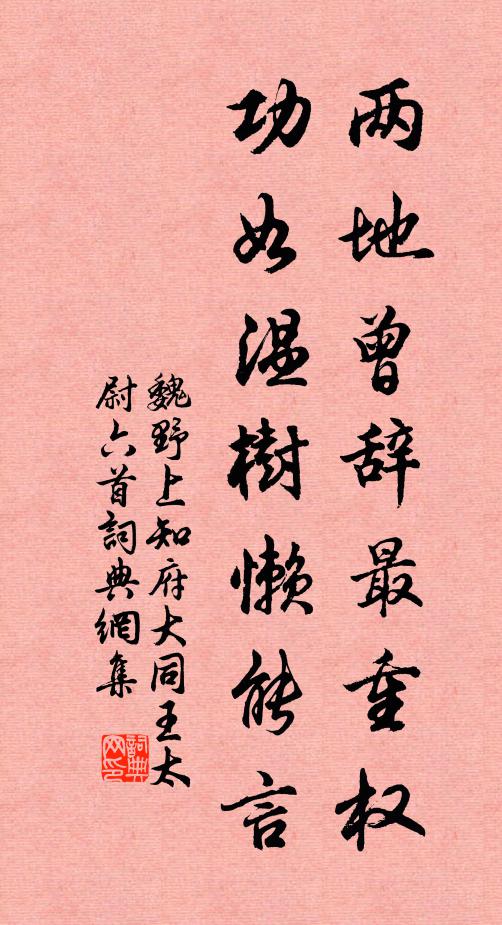 两地曾辞最重权
功如温樹懒能言
魏野上知府大同王太
尉六首詞典網集
詞典网印